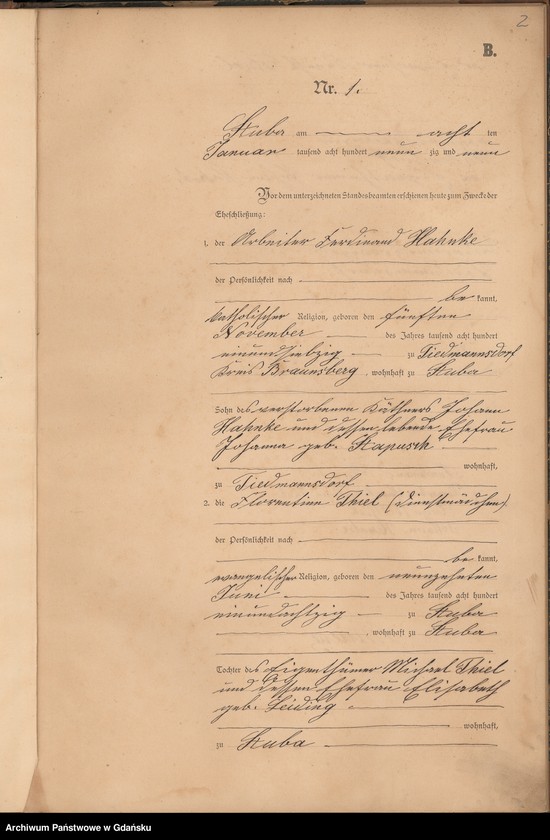 2
B.
Nr. 1.
Stuba am acht ten
Januar tausend acht hundert neun zig und neun
Vor dem unterzeichneten Standesbeamten erschienen heute zum Zwecke der
Eheschließung:
1. der Arbeiter Ferdinand Hahnke
der Persönlichkeit nach
be kannt,
katholischer Religion, geboren den fünften
November des Jahres tausend acht hundert
einundsiebzig zu Tiedmannsdorf
Kreis Braunsberg, wohnhaft zu Stuba
Sohn des verstorbenen Käthners Johann
Hahnke und dessen lebende Ehefrau
Johanna geb. Stapusch
wohnhaft,
zu Tiedmannsdorf
2. die Florentine Thiel (Dienstmädchen)
der Persönlichkeit nach
be kannt,
evangelischer Religion, geboren den neunzehnten
Juni des Jahres tausend acht hundert
einundachtzig zu Stuba
, wohnhaft zu Stuba
Tochter des Eigenthümer Michael Thiel
und dessen Ehefrau Elisabeth
geb. Leiding
wohnhaft,
zu Stuba
Archiwum Państwowe w Gdańsku